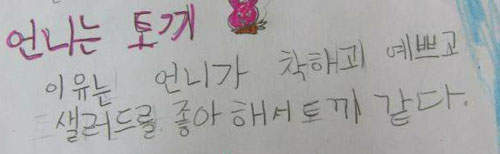 언니는 토끼
이유는 언니가 착해고 예쁘고
샐러드를 좋아해서 토끼 같다.